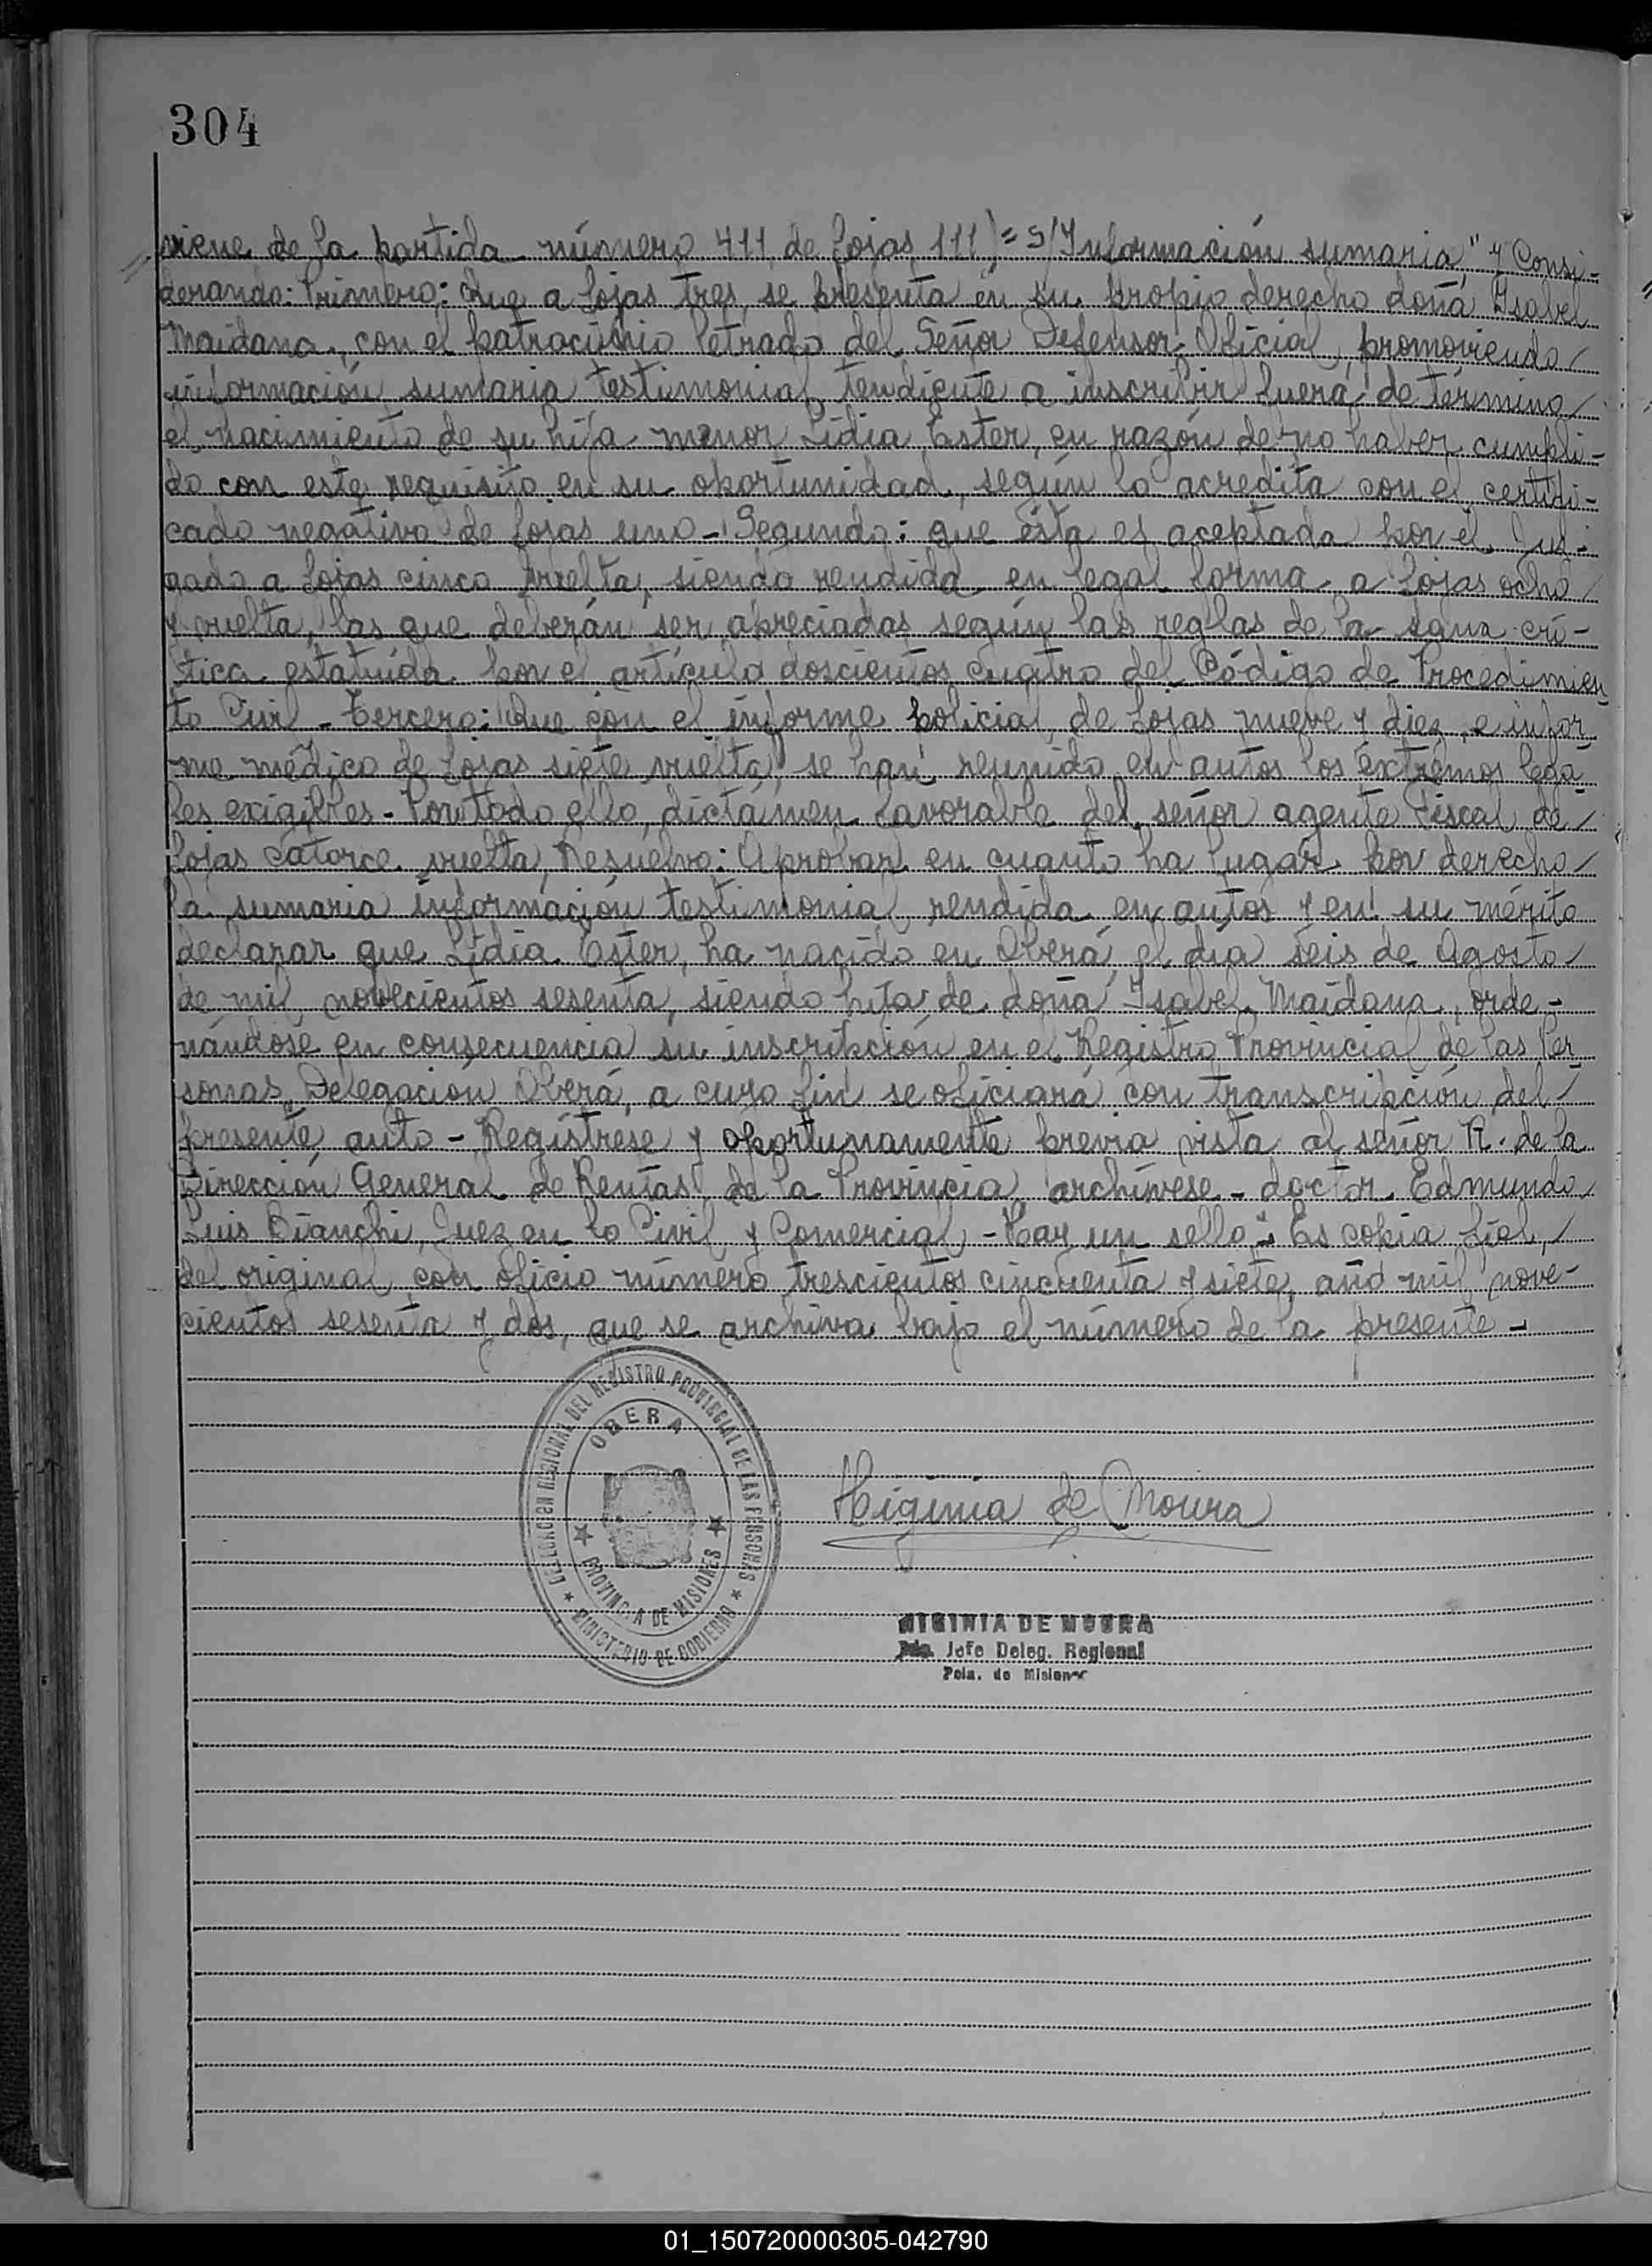 304
viene de la partida número 411 de fojas 111) = S/Información sumaria," y Consi-
derando: Primero: Que a fojas tres, se presenta en su propio derecho doña Isabel
Maidana, con el patrocinio letrado del Señor Defensor Oficial, promoviendo/
información sumaria testimonial tendiente a inscribir fuera de término/
el nacimiento de su hija menor Lidia Ester, en razón de no haber cumpli-
do con este requisito en su oportunidad, según lo acredita con el certifi-
cado negativo de fojas uno- Segundo: que ésta es aceptada por el Juz-
gado a fojas cinco vuelta, siendo rendida en legal forma a fojas ocho/
y vuelta, las que deberán ser apreciadas según las reglas de la sana crí-
tica estatuída por el artículo doscientos cuatro del Código de Procedimien
to Civil- Tercero: Que con el informe policial de fojas nueve y diez, e infor
me médico de fojas siete vuelta, se han reunido en autos los extremos lega
les exigibles- Por todo ello, dictámen favorable del señor agente Fiscal de/
fojas catorce vuelta, Resuelvo: Aprobar en cuanto ha lugar por derecho/
la sumaria información testimonial rendida en autos y en su mérito
declarar que Lidia Ester, ha nacido en Oberá el día seis de Agosto/
de mil novecientos sesenta, siendo hija de doña Isabel Maidana, orde-
nándose en consecuencia su inscripción en el Registro Provincial de las Per
sonas, Delegación Oberá, a cuyo fin se oficiará con transcripción del/
presente auto- Regístrese y oportunamente previa vista al señor R. de la
Dirección General de Rentas de la Provincia, archívese- doctor Edmundo
Luis Bianchi, Juez en lo Civil y Comercial- Hay un sello"- Es copia fiel,/
del original con oficio número trescientos cincuenta y siete, año mil nove-
cientos sesenta y dos, que se archiva bajo el número de la presente-
DELEGACION REGIONAL DEL REGISTRO PROVINCIAL DE LAS PERSONAS
OBERA
PROVINCIA DE MISIONES
MINISTERIO DE GOBIERNO
Higinia de Moura
HIGINIA DE MOURA
Jefe Deleg. Regional
Pcia. de Misiones
01_150720000305-042790